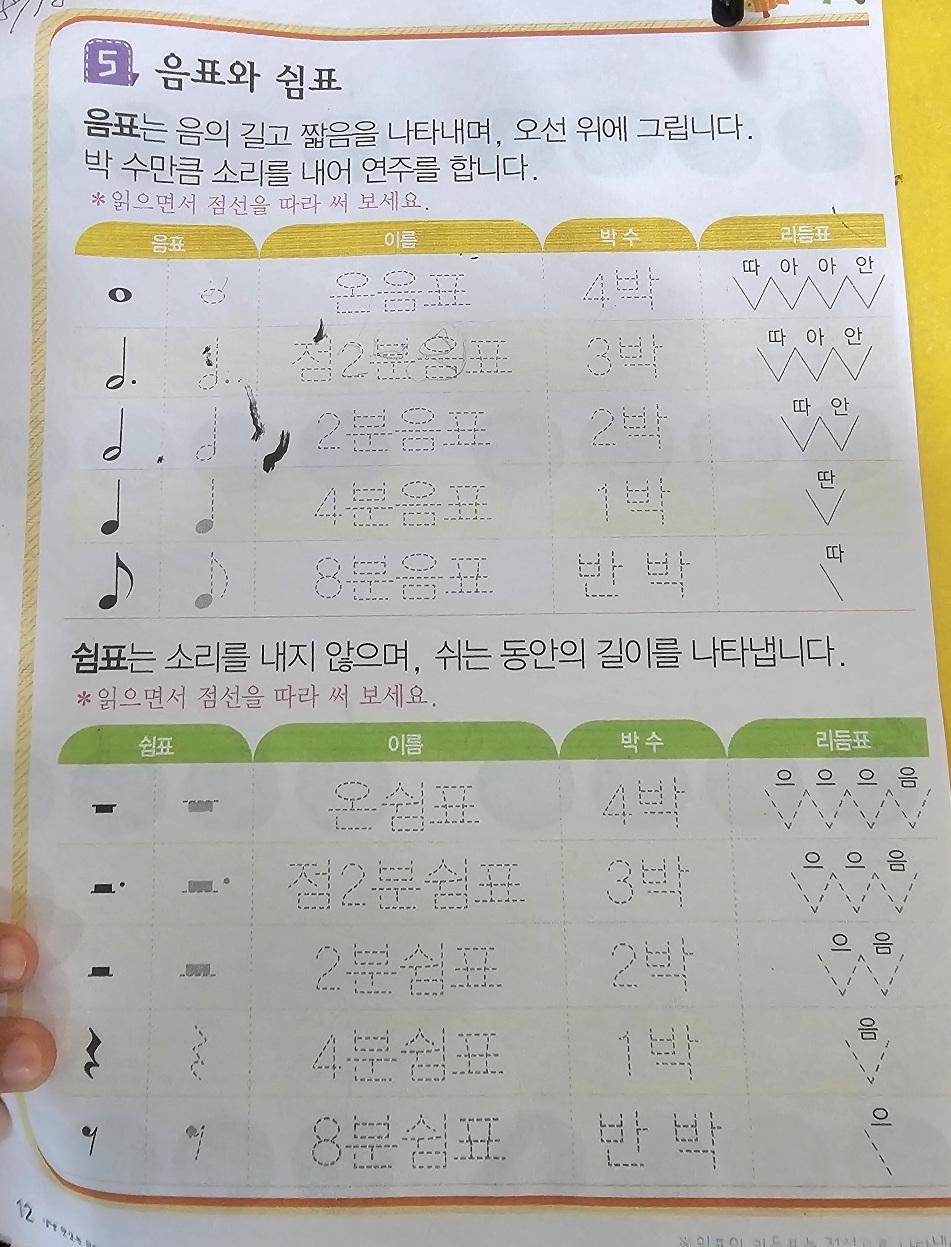 5 음표와 쉼표
음표는 음의 길고 짧음을 나타내며, 오선 위에 그립니다.
박 수만큼 소리를 내어 연주를 합니다.
*읽으면서 점선을 따라 써 보세요.
음표 이름 박 수 리듬표
온음표 4박 따 아 아 안
점2분음표 3박 따 아 안
2분음표 2박 따 안
4분음표 1박 딴
8분음표 반 박 따
쉼표는 소리를 내지 않으며, 쉬는 동안의 길이를 나타냅니다.
*읽으면서 점선을 따라 써 보세요.
쉼표 이름 박 수 리듬표
온쉼표 4박 으 으 으 음
점2분쉼표 3박 으 으 음
2분쉼표 2박 으 음
4분쉼표 1박 음
8분쉼표 반 박 으
12